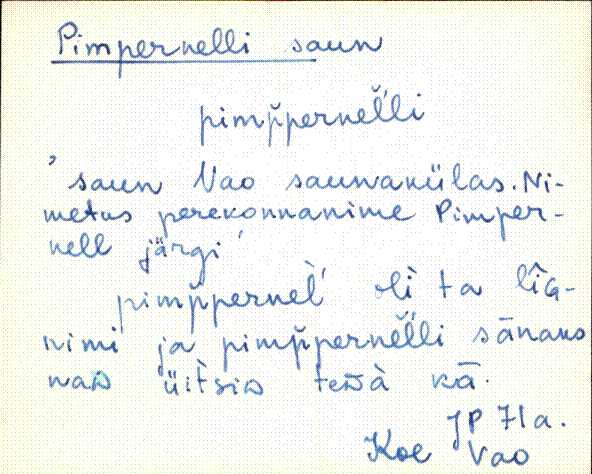 Pimpernelli saun
pimp̆perneĺ̆li
’saun Vao saunakülas. Ni-
metus perekonnanime Pimper-
nell järgi’
pimp̆perneĺ̀ olì ta lîG-
nimi ja pimp̆perneĺ̆li sānaks
naD üit̀siD teDà kā.
JP 71a.
Koe Vao